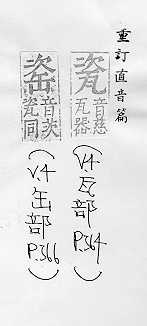 重訂直音篇
瓷 音慈 瓦器
(V.4 瓦部 P.364)
音茨 瓷同
(V.4 缶部 P.366)